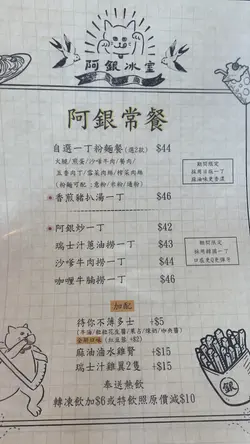 阿銀冰室
阿銀常餐
自選一丁粉麵餐(選2款) $44
火腿/煎蛋/沙嗲牛肉/餐肉/
五香肉丁/雪菜肉絲/榨菜肉絲
(粉麵可配:意粉/米粉/通粉)
香煎豬扒湯一丁 $46
阿銀炒一丁 $42
瑞士汁蔥油撈一丁 $43
沙嗲牛肉撈一丁 $44
咖喱牛腩撈一丁 $46
期間限定
採用日版一丁
麻油味更香濃
期間限定
口感更Q更彈牙
加配
待你不薄多士 +$5
麻油滷水雞腎 +$15
瑞士汁雞翼2隻 +$15
奉送熱飲
轉凍飲加$6或特飲照原價減$10
銀